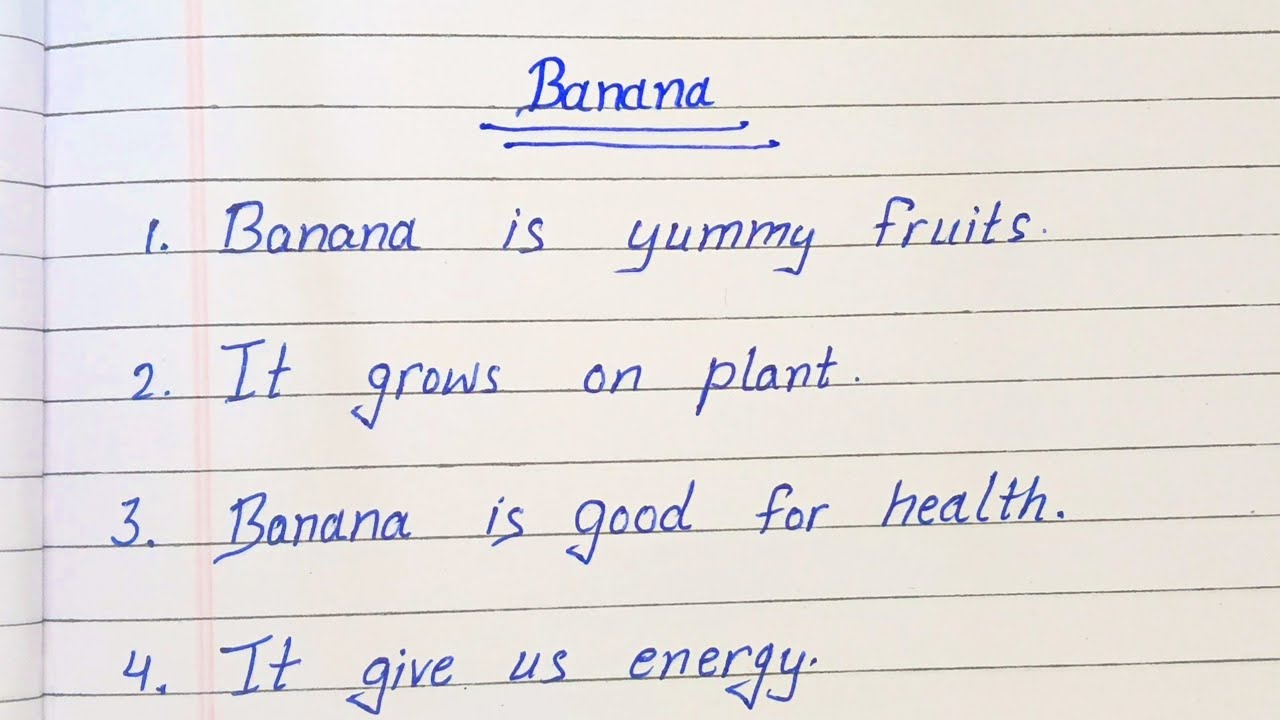 Banana
1. Banana is yummy fruits.
2. It grows on plant.
3. Banana is good for health.
4. It give us energy.